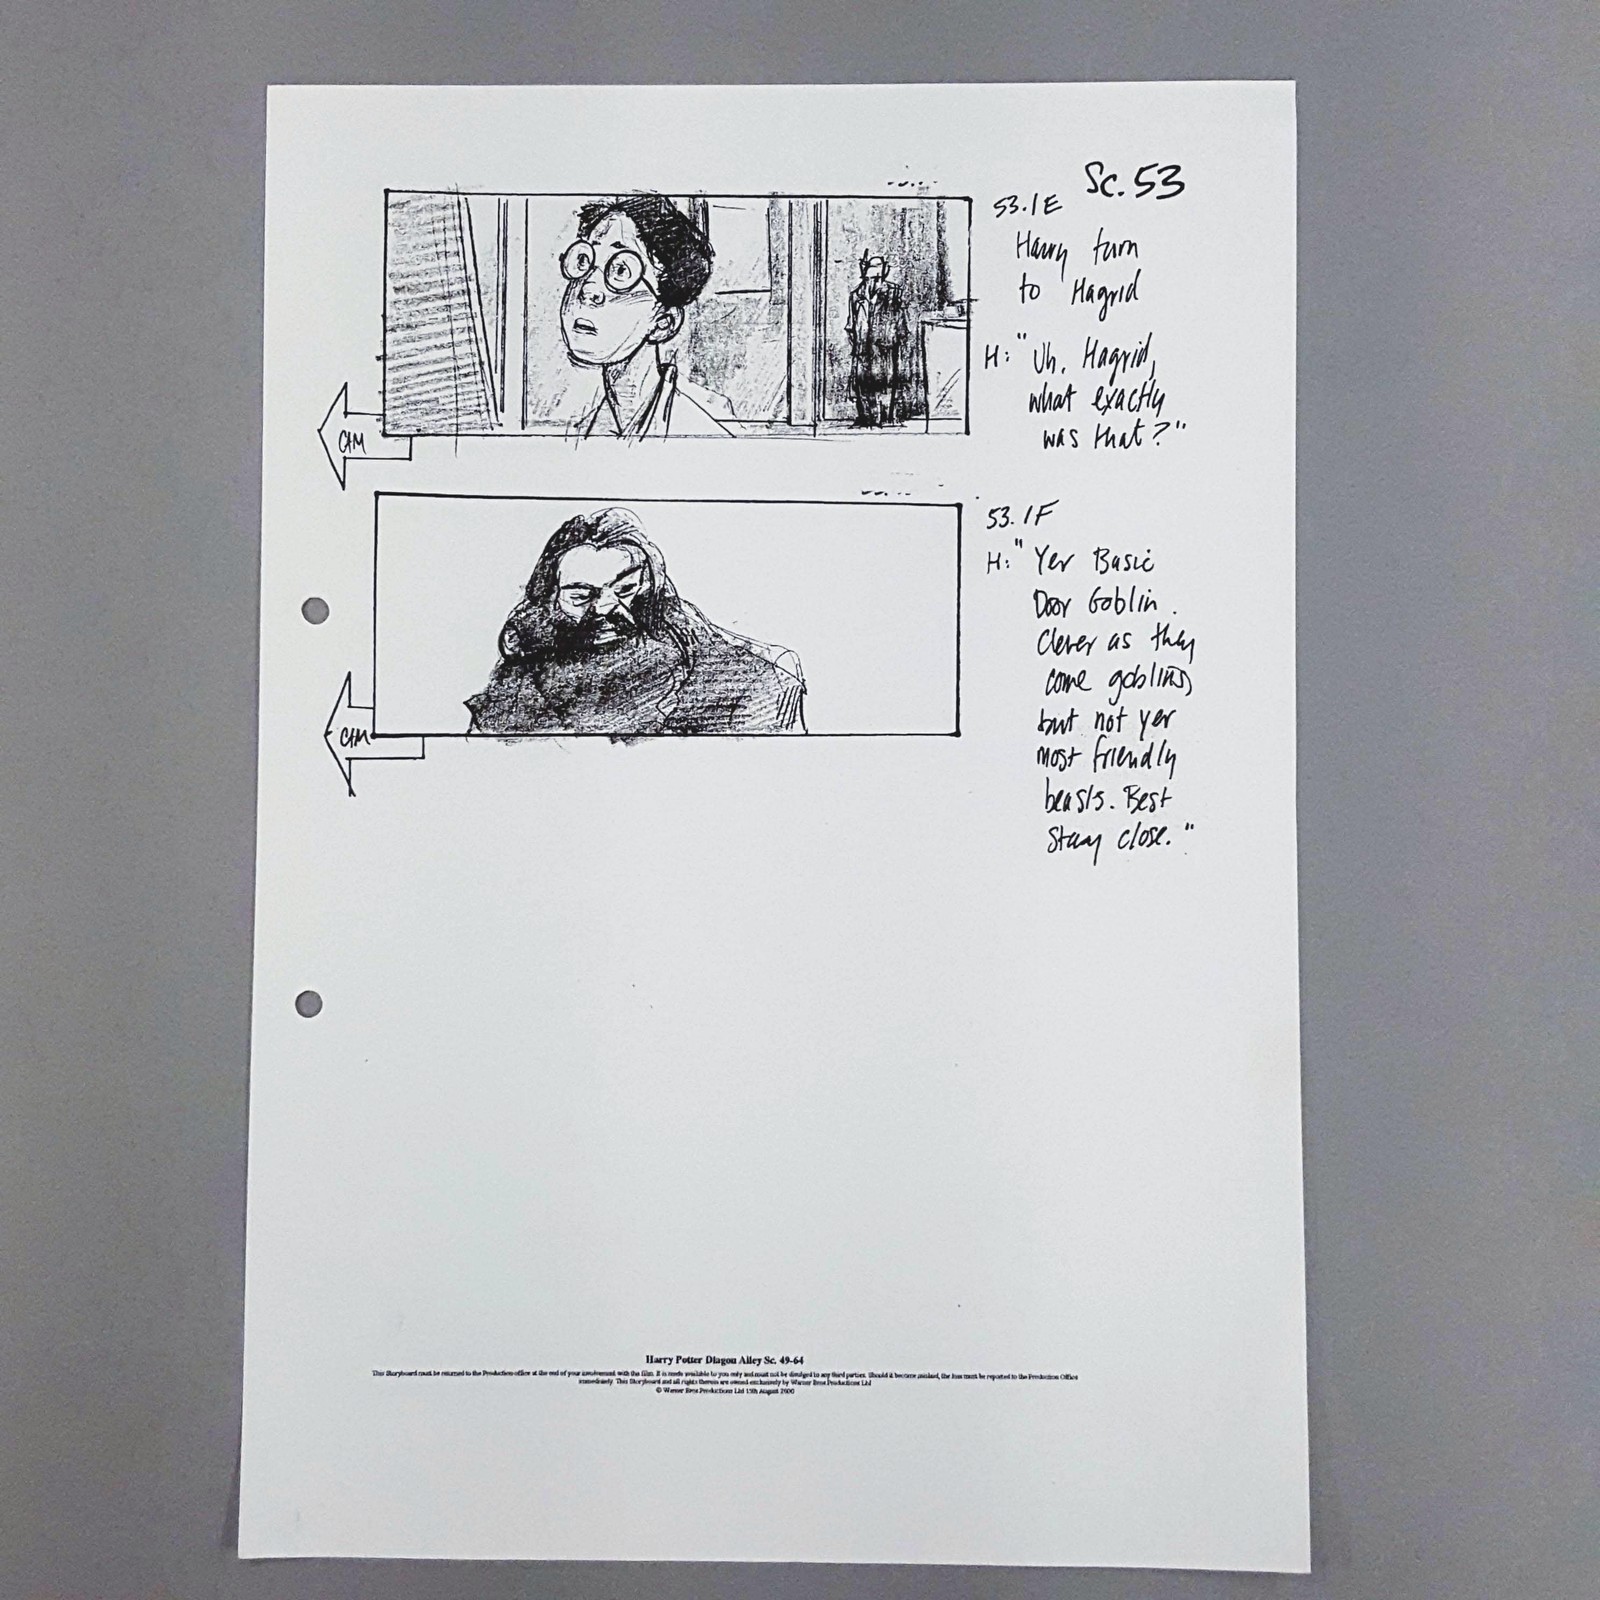 Sc. 53
53.1E
Harry turn
to Hagrid
H: "Uh, Hagrid,
what exactly
was that?"
CAM
53.1F
H: "Yer Basic
Door Goblin.
Clever as they
come goblins,
but not yer
most friendly
beasts. Best
Stay close."
CAM
Harry Potter Diagon Alley Sc. 49-64
This Storyboard must be returned to the Production office at the end of your involvement with the film. It is made available to you only and must not be divulged to any third parties. Should it become mislaid, the loss must be reported to the Production Office
immediately. This Storyboard and all rights therein are owned exclusively by Warner Bros Productions Ltd
© Warner Bros Productions Ltd 15th August 2000